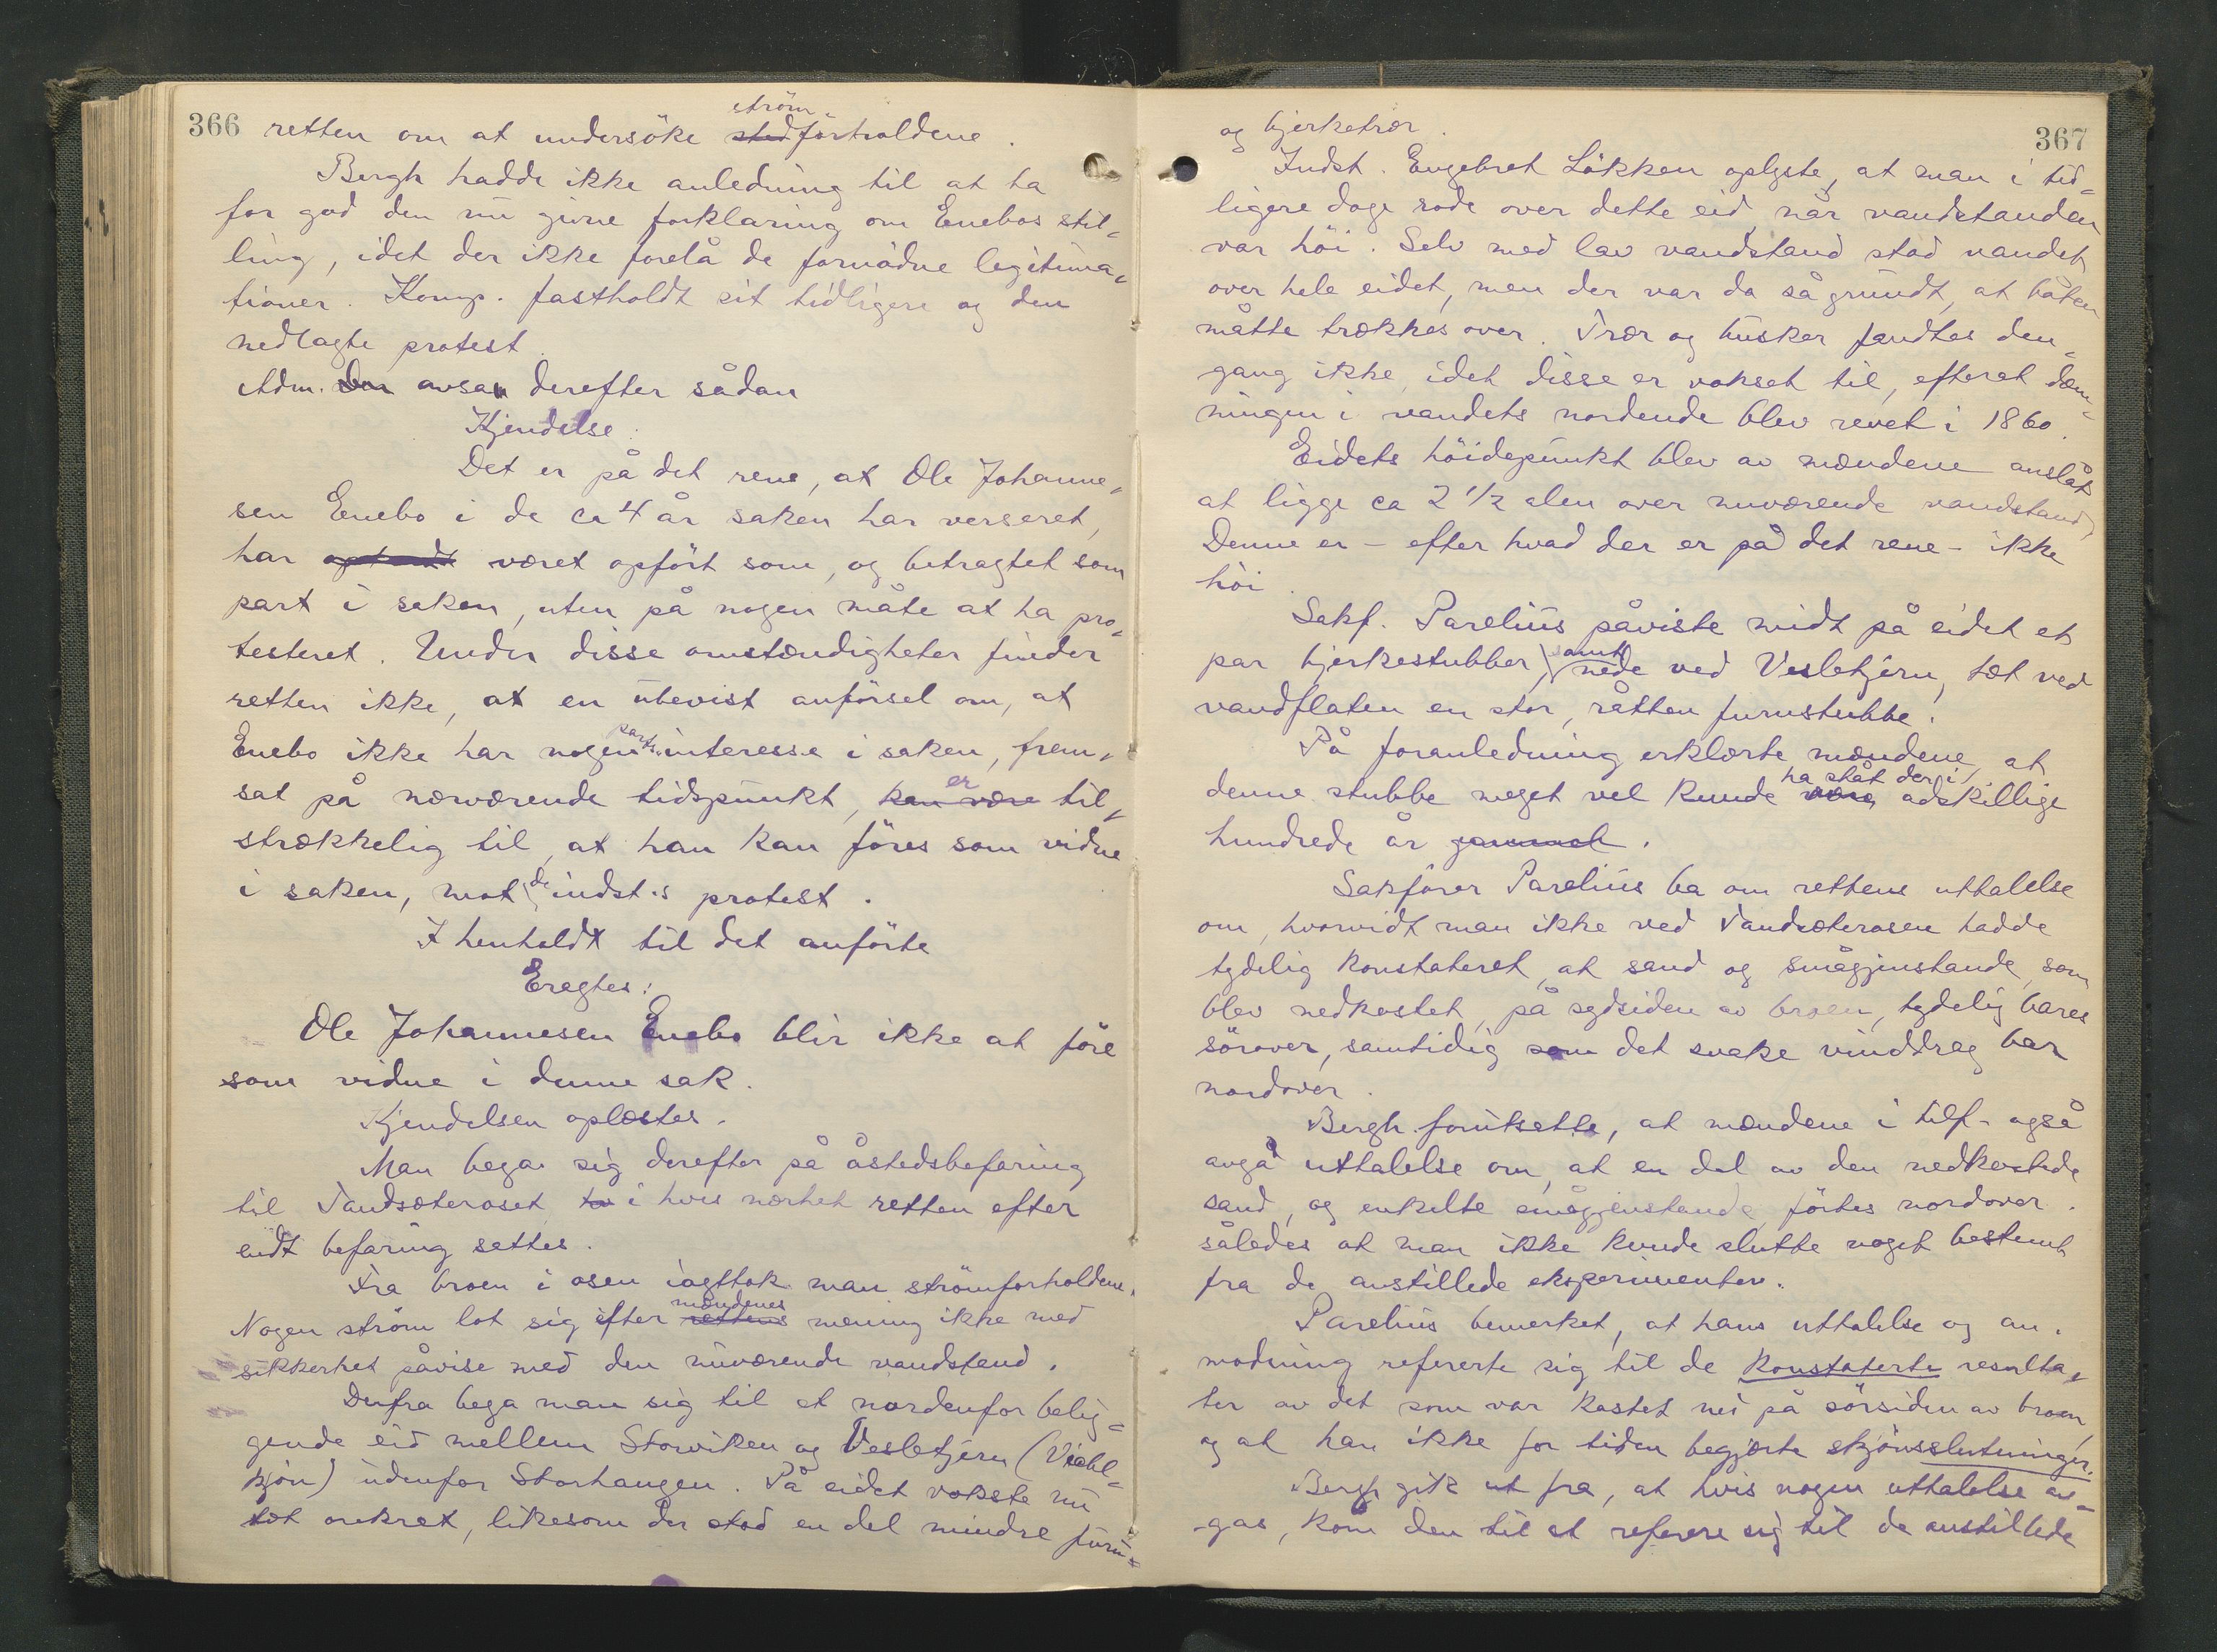 366 retten om at undersöke strömforholdene.
Bergh hadde ikke anledning til at ta
for god den nu givne forklaring om Enebos stil-
ling, idet der ikke forelå de fornödne legitima-
tioner. Komp. fastholdt sit tidligere og den
nedlagte protest.
Adm. avsa derefter sådan
Kjendelse:
Det er på det rene, at Ole Johanne-
sen Enebo i de ca 4 år saken har verseret,
har været opfört som, og betragtet som
part i saken, uten på nogen måte at ha pro-
testeret. Under disse omstændigheter finder
retten ikke, at en ubevist anförsel om, at
Enebo ikke har nogen parts-interesse i saken, frem-
sat på nærværende tidspunkt, er til-
strækkelig til, at han kan föres som vidne
i saken, mot de indst.s protest.
I henholdt til det anförte
Eragtes:
Ole Johannesen Enebo blir ikke at före
som vidne i denne sak.
Kjendelsen oplæstes.
Man bega sig derefter på åstedsbefaring
til Vandsæteroset i hvis nærhet retten efter
endt befaring sættes.
Fra broen i osen iagttok man strömforholdene.
Nogen ström lot sig efter mændenes mening ikke med
sikkerhet påvise med den nuværende vandstand.
Derfra bega man sig til et nordenfor belig-
gende eid mellem Storviken og Vesletjern (Vesl-
tjön) udenfor Storhaugen. På eidet vokste nu
tæt orekrat, likesom der stod en del mindre furu-
og bjerketrær.
367
Indst. Engebret Lökken oplyste, at man i tid-
ligere dage rodde over dette eid, når vandstanden
var höi. Selv med lav vandstand stod vandet
over hele eidet, men der var da så grundt, at båten
måtte trækkes over. Trær og busker fandtes den-
gang ikke, idet disse er vokset til, efterat dæm-
ningen i vandets nordende blev revet i 1860.
Eidets höidepunkt blev av mændene anslåt
at ligge ca 2 1/2 alen over nuværende vandstand.
Denne er - efter hvad der er på det rene - ikke
höi.
Sakf. Parelius påviste midt på eidet et
par bjerkestubber, samt nede ved Vesletjern, tæt ved
vandflaten en stor, råtten furustubbe.
På foranledning erklærte mændene, at
denne stubbe meget vel kunde ha ståt der i adskillige
hundrede år.
Sakförer Parelius ba om rettens uttalelse
om, hvorvidt man ikke ved Vandsæterosen hadde
tydelig konstateret, at sand og smågjenstande, som
blev nedkastet, på sydsiden av broen, tydelig bares
sörover, samtidig som det svake vinddrag bar
nordover.
Bergh forutsatte, at mændene i tilf. også
avga uttalelse om, at en del av den nedkastede
sand, og enkelte smågjenstande, förtes nordover.
således at man ikke kunde slutte noget bestemt
fra de anstillede eksperimenter.
Parelius bemerket, at hans uttalelse og an-
modning refererte sig til de konstaterte resulta-
ter av det som var kastet ned på sörsiden av broen,
og at han ikke for tiden begjærte skjönsslutninger.
Bergh gik ut fra, at hvis nogen uttalelse av-
gas, kom den til at referere sig til de anstillede